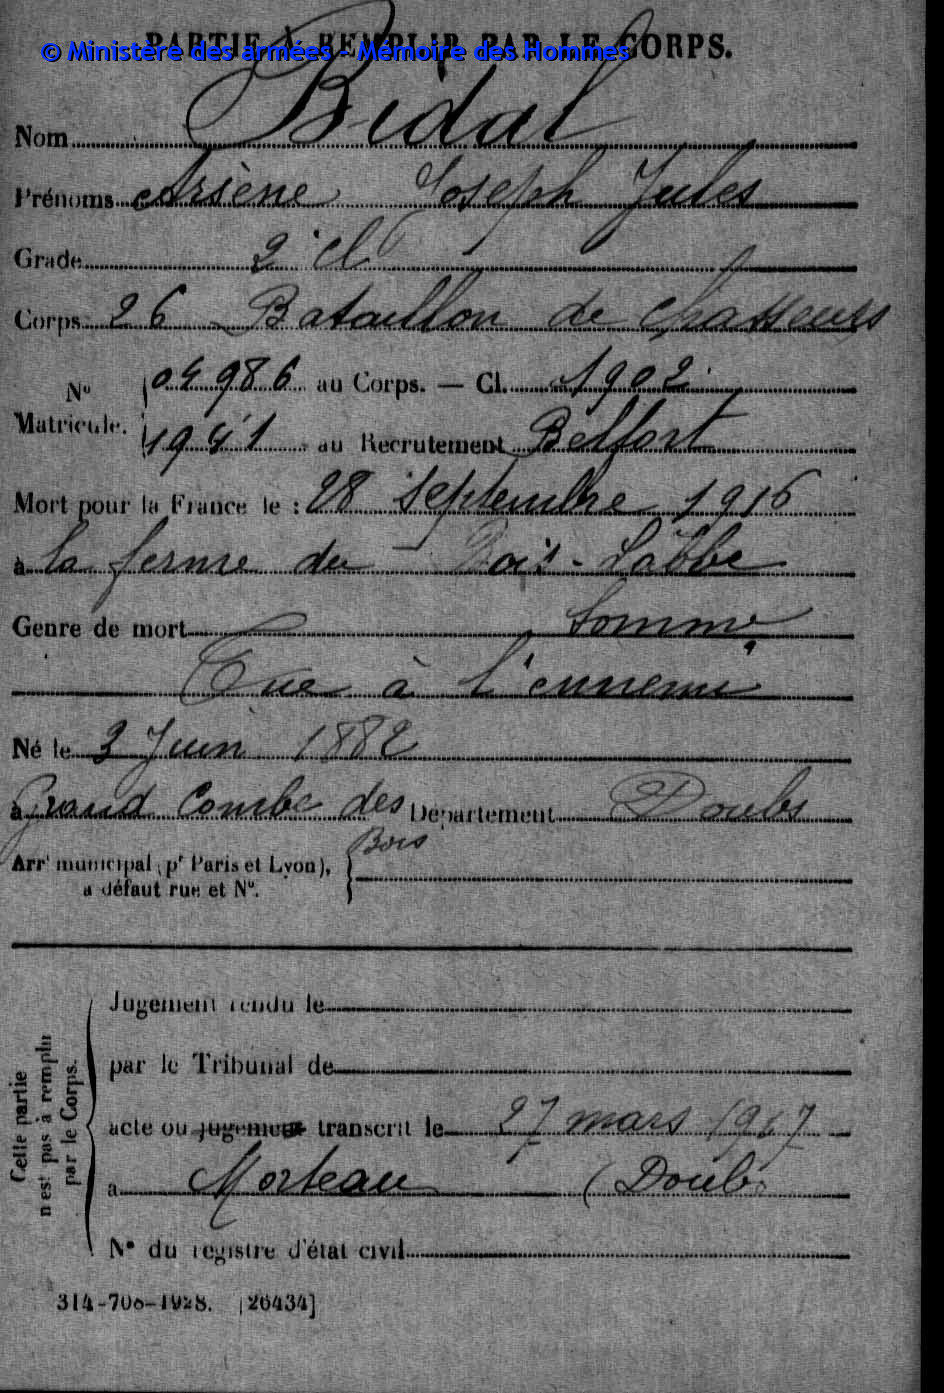 PARTIE À REMPLIR PAR LE CORPS.
© Ministère des armées - Mémoire des Hommes
Nom Bidal
Prénoms Arsène Joseph Jules
Grade 2e cl
Corps 26 Bataillon de Chasseurs
No Matricule. 04986 au Corps. — Cl. 1902
1941 au Recrutement Belfort
Mort pour la France le : 28 septembre 1916
à la ferme du Bois-Labbé
Genre de mort Somme
Tué à l'ennemi
Né le 3 Juin 1882
à Grand Combe des Département Doubs
Bois
Arrt municipal (pr Paris et Lyon),
à défaut rue et No.
Cette partie n'est pas à remplir par le Corps.
Jugement rendu le
par le Tribunal de
acte ou jugement transcrit le 27 mars 1917
à Morteau (Doubs
No du registre d'état civil
314-708-1928. [26434]